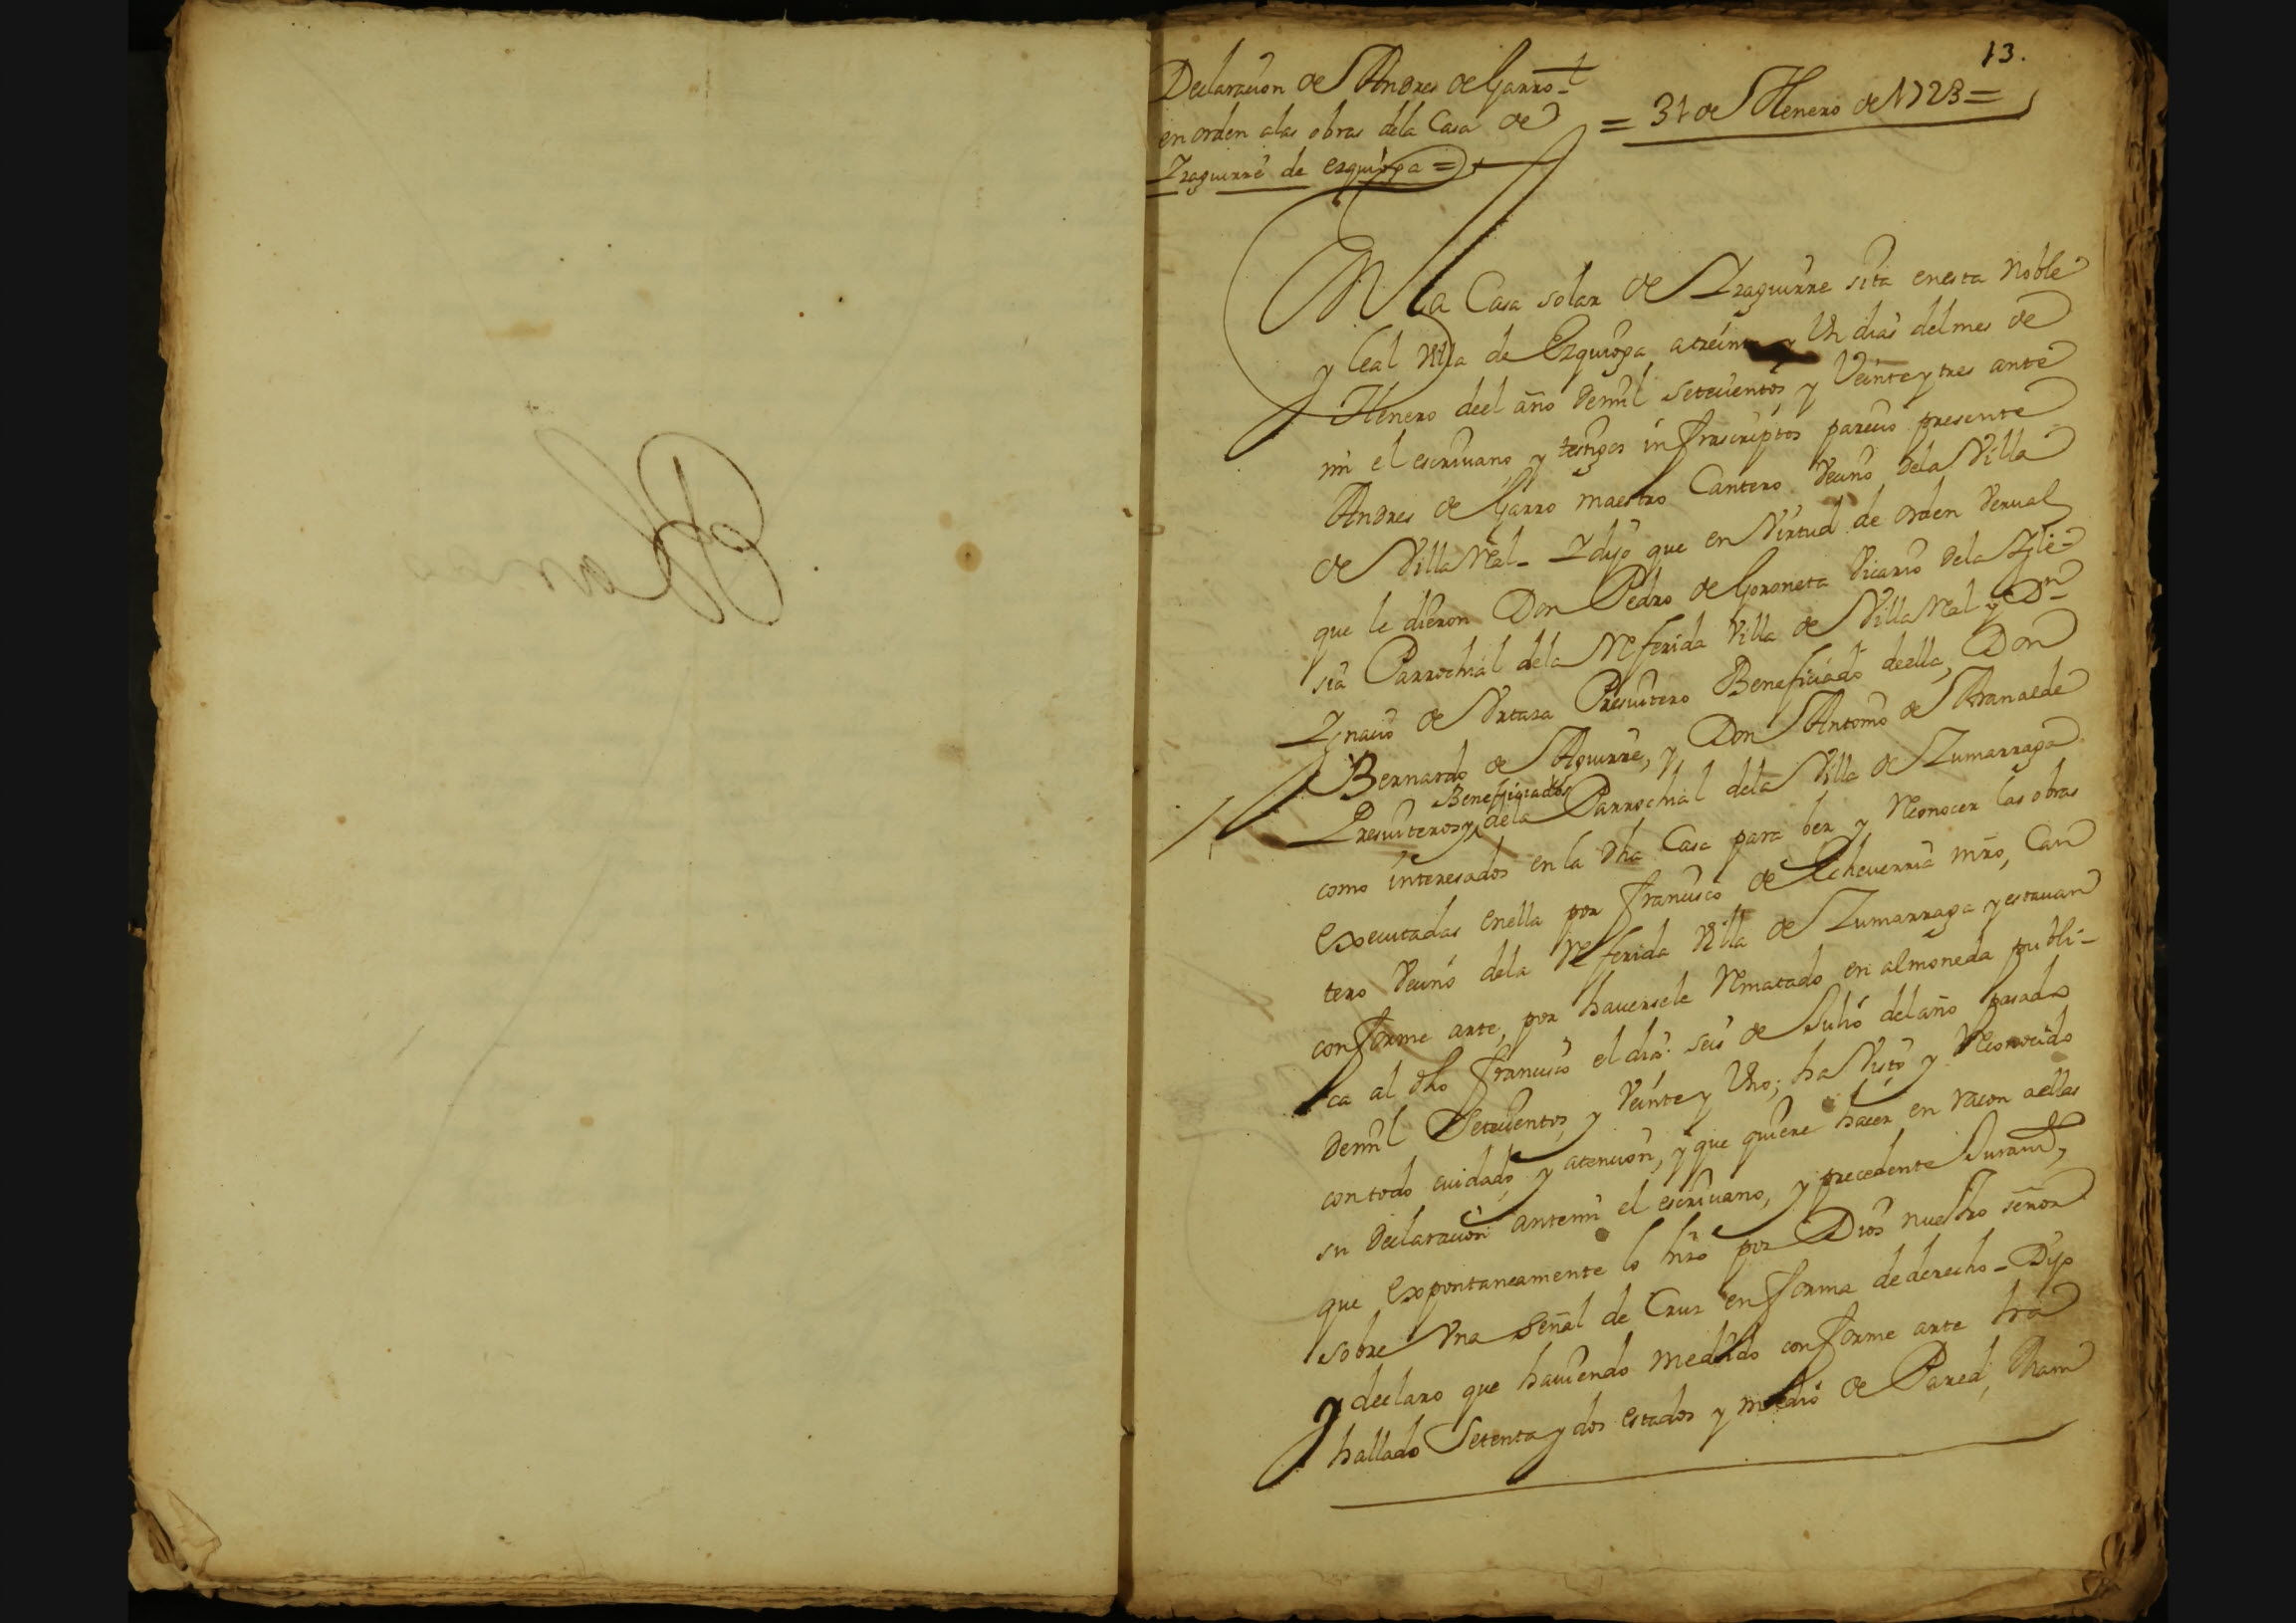 13.
Declaracion de Andres de Garro
en orden alas obras dela Casa de
Yzaguirre de ezquioga =
= 31 de Henero de 1723 =
En la Casa solar de Yzaguirre sita enesta Noble
y leal Villa de Ezquioga, atreinta y Un dias del mes de
Henero deel año demil setecientos y Veinte y tres ante
mi el escriuano y testigos infrascriptos parecio presente
Andres de Garro maestro Cantero Vecino dela Villa
de Villa Real - Y dijo que en Virtud de orden Verual
que le dieron Don Pedro de Goroneta Vicario dela Ygle-
sia Parrochial dela Referida Villa de Villa Real y Dn
Ygnacio de Urtaza Presuitero Beneficiado deella, Don
Bernardo de Aguirre, y Don Antonio de Aranalde
Presuiteros y Beneficiados dela Parrochial dela Villa de Zumarraga
como interesados en la dha Casa para ber y Reconocer las obras
executadas enella por Francisco de Echeuerria mro, Can
tero Vecino dela Referida Villa de Zumarraga y estauan
conforme arte, por hauersele Rematado en almoneda publi-
ca al dho Francisco el dia seis de Julio del año pasado
demil Setecientos y Veinte y Uno; ha Visto y Reconocido
con todo cuidado y atencion, y que quiere hacer en racon aellas
su Declaracion antemi el escriuano, y precedente Juram,
que expontaneamente lo hizo por Dios nuestro señor
sobre Una señal de Cruz en forma de derecho - Dijo
y declaro que hauiendo medido conforme arte ha
hallado Setenta y dos estados y medio de Pared,